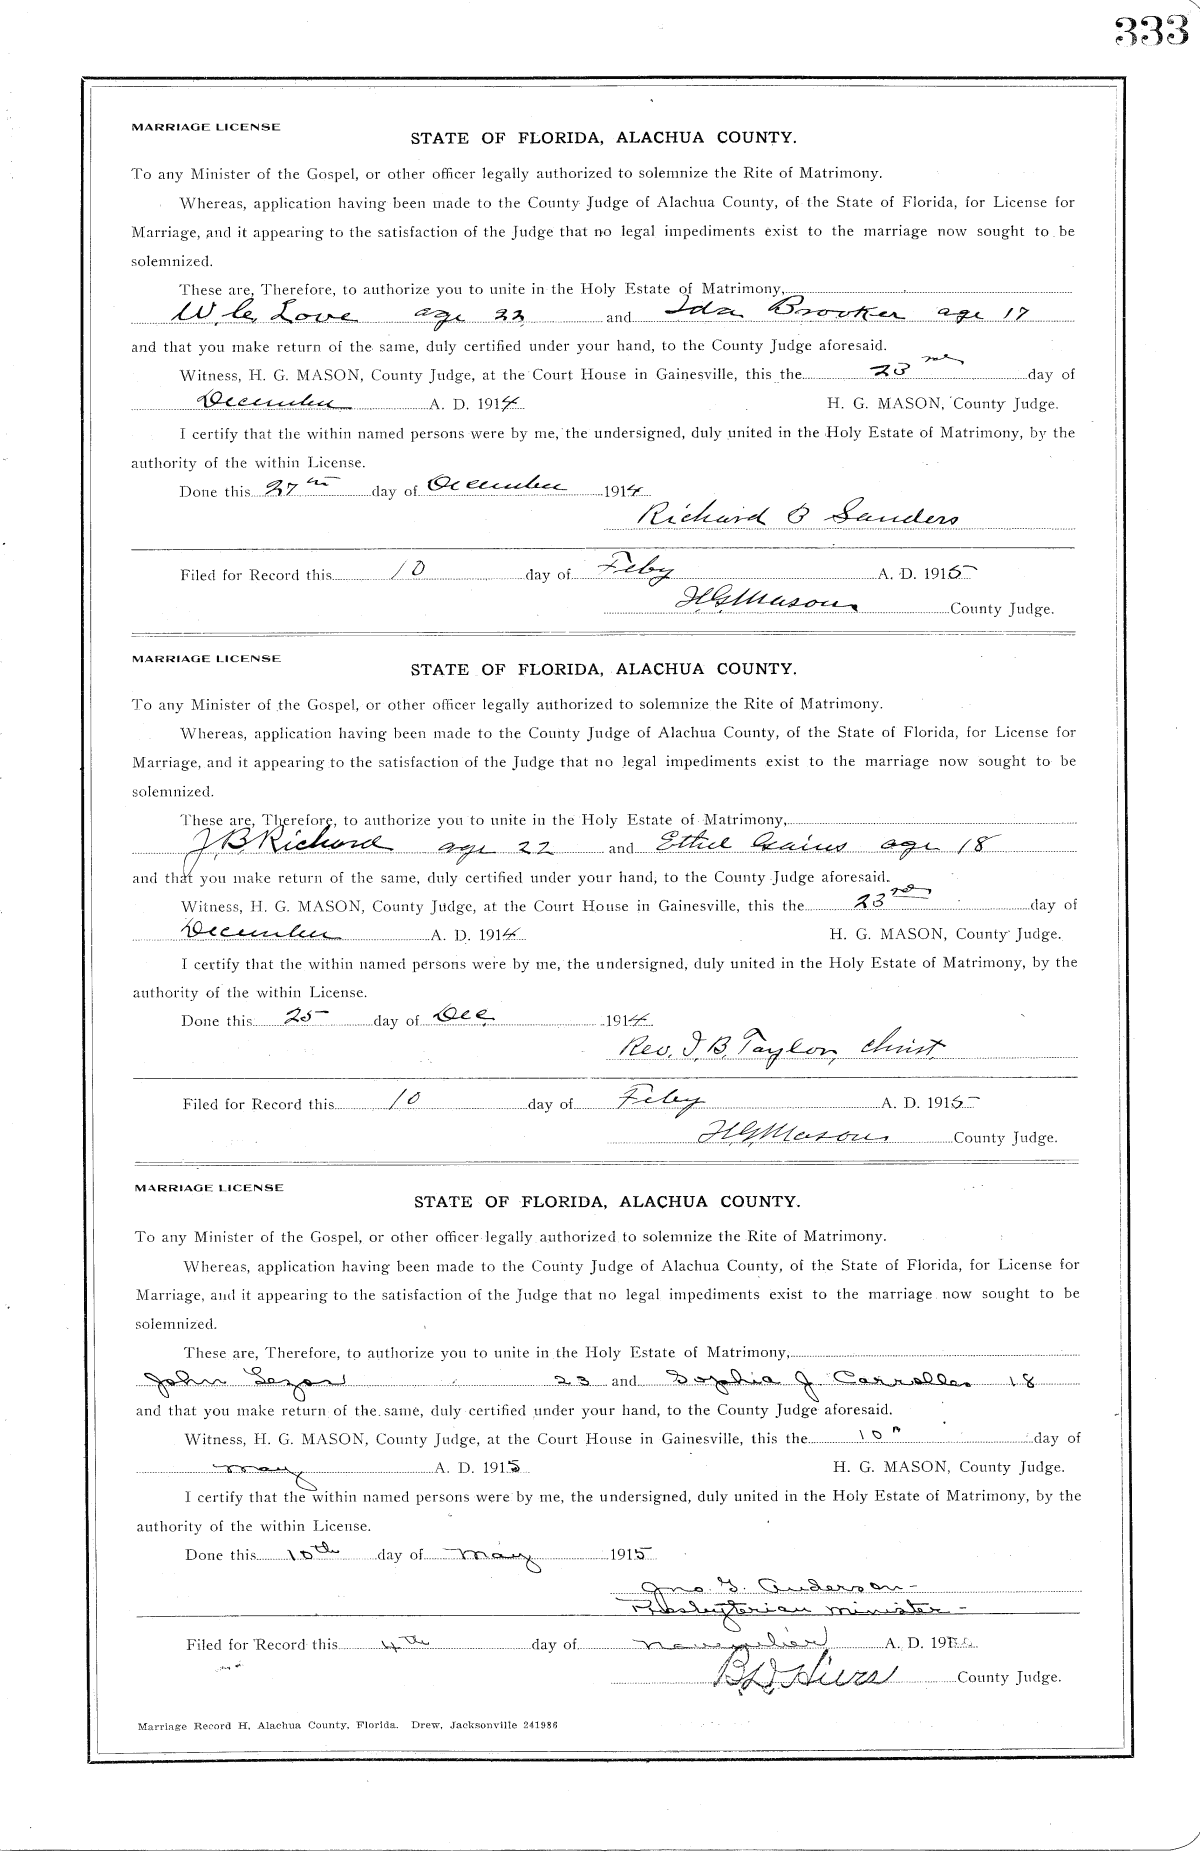 333
MARRIAGE LICENSE
STATE OF FLORIDA, ALACHUA COUNTY.
To any Minister of the Gospel, or other officer legally authorized to solemnize the Rite of Matrimony.
Whereas, application having been made to the County Judge of Alachua County, of the State of Florida, for License for
Marriage, and it appearing to the satisfaction of the Judge that no legal impediments exist to the marriage now sought to be
solemnized.
These are, Therefore, to authorize you to unite in the Holy Estate of Matrimony,
W. C. Love age 22 and Ida Brooker age 17
and that you make return of the same, duly certified under your hand, to the County Judge aforesaid.
Witness, H. G. MASON, County Judge, at the Court House in Gainesville, this the 23rd day of
December A. D. 1914 H. G. MASON, County Judge.
I certify that the within named persons were by me, the undersigned, duly united in the Holy Estate of Matrimony, by the
authority of the within License.
Done this 27th day of December 1914
Richard B Sanders
Filed for Record this 10 day of Feby A. D. 1915
H. G. Mason County Judge.
MARRIAGE LICENSE
STATE OF FLORIDA, ALACHUA COUNTY.
To any Minister of the Gospel, or other officer legally authorized to solemnize the Rite of Matrimony.
Whereas, application having been made to the County Judge of Alachua County, of the State of Florida, for License for
Marriage, and it appearing to the satisfaction of the Judge that no legal impediments exist to the marriage now sought to be
solemnized.
These are, Therefore, to authorize you to unite in the Holy Estate of Matrimony,
J. B. Richard age 22 and Ethel Gains age 18
and that you make return of the same, duly certified under your hand, to the County Judge aforesaid.
Witness, H. G. MASON, County Judge, at the Court House in Gainesville, this the 23rd day of
December A. D. 1914 H. G. MASON, County Judge.
I certify that the within named persons were by me, the undersigned, duly united in the Holy Estate of Matrimony, by the
authority of the within License.
Done this 25 day of Dec. 1914
Rev. J. B. Taylor, Christ.
Filed for Record this 10 day of Feby A. D. 1915
H. G. Mason County Judge.
MARRIAGE LICENSE
STATE OF FLORIDA, ALACHUA COUNTY.
To any Minister of the Gospel, or other officer legally authorized to solemnize the Rite of Matrimony.
Whereas, application having been made to the County Judge of Alachua County, of the State of Florida, for License for
Marriage, and it appearing to the satisfaction of the Judge that no legal impediments exist to the marriage now sought to be
solemnized.
These are, Therefore, to authorize you to unite in the Holy Estate of Matrimony,
John 23 and Sophia J 18
and that you make return of the same, duly certified under your hand, to the County Judge aforesaid.
Witness, H. G. MASON, County Judge, at the Court House in Gainesville, this the 10th day of
May A. D. 1915 H. G. MASON, County Judge.
I certify that the within named persons were by me, the undersigned, duly united in the Holy Estate of Matrimony, by the
authority of the within License.
Done this 10th day of May 1915
Jno. G. Anderson-
Presbyterian Minister-
Filed for Record this 4th day of November A. D.
B. D. Hiers County Judge.
Marriage Record H, Alachua County, Florida. Drew, Jacksonville 241986